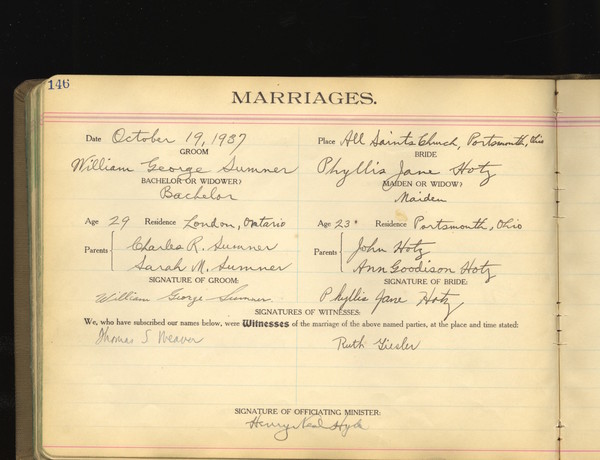 146
MARRIAGES.
Date October 19, 1937 Place All Saints Church, Portsmouth, Ohio
GROOM BRIDE
William George Sumner Phyllis Jane Hotz
BACHELOR OR WIDOWER? MAIDEN OR WIDOW?
Bachelor Maiden
Age 29 Residence London, Ontario Age 23 Residence Portsmouth, Ohio
Parents Charles R. Sumner John Hotz
Sarah M. Sumner Parents Ann Goodison Hotz
SIGNATURE OF GROOM: SIGNATURE OF BRIDE:
William George Sumner Phyllis Jane Hotz
SIGNATURES OF WITNESSES:
We, who have subscribed our names below, were Witnesses of the marriage of the above named parties, at the place and time stated:
Thomas S Weaver Ruth Giesler
SIGNATURE OF OFFICIATING MINISTER:
Henry Neal Hyde